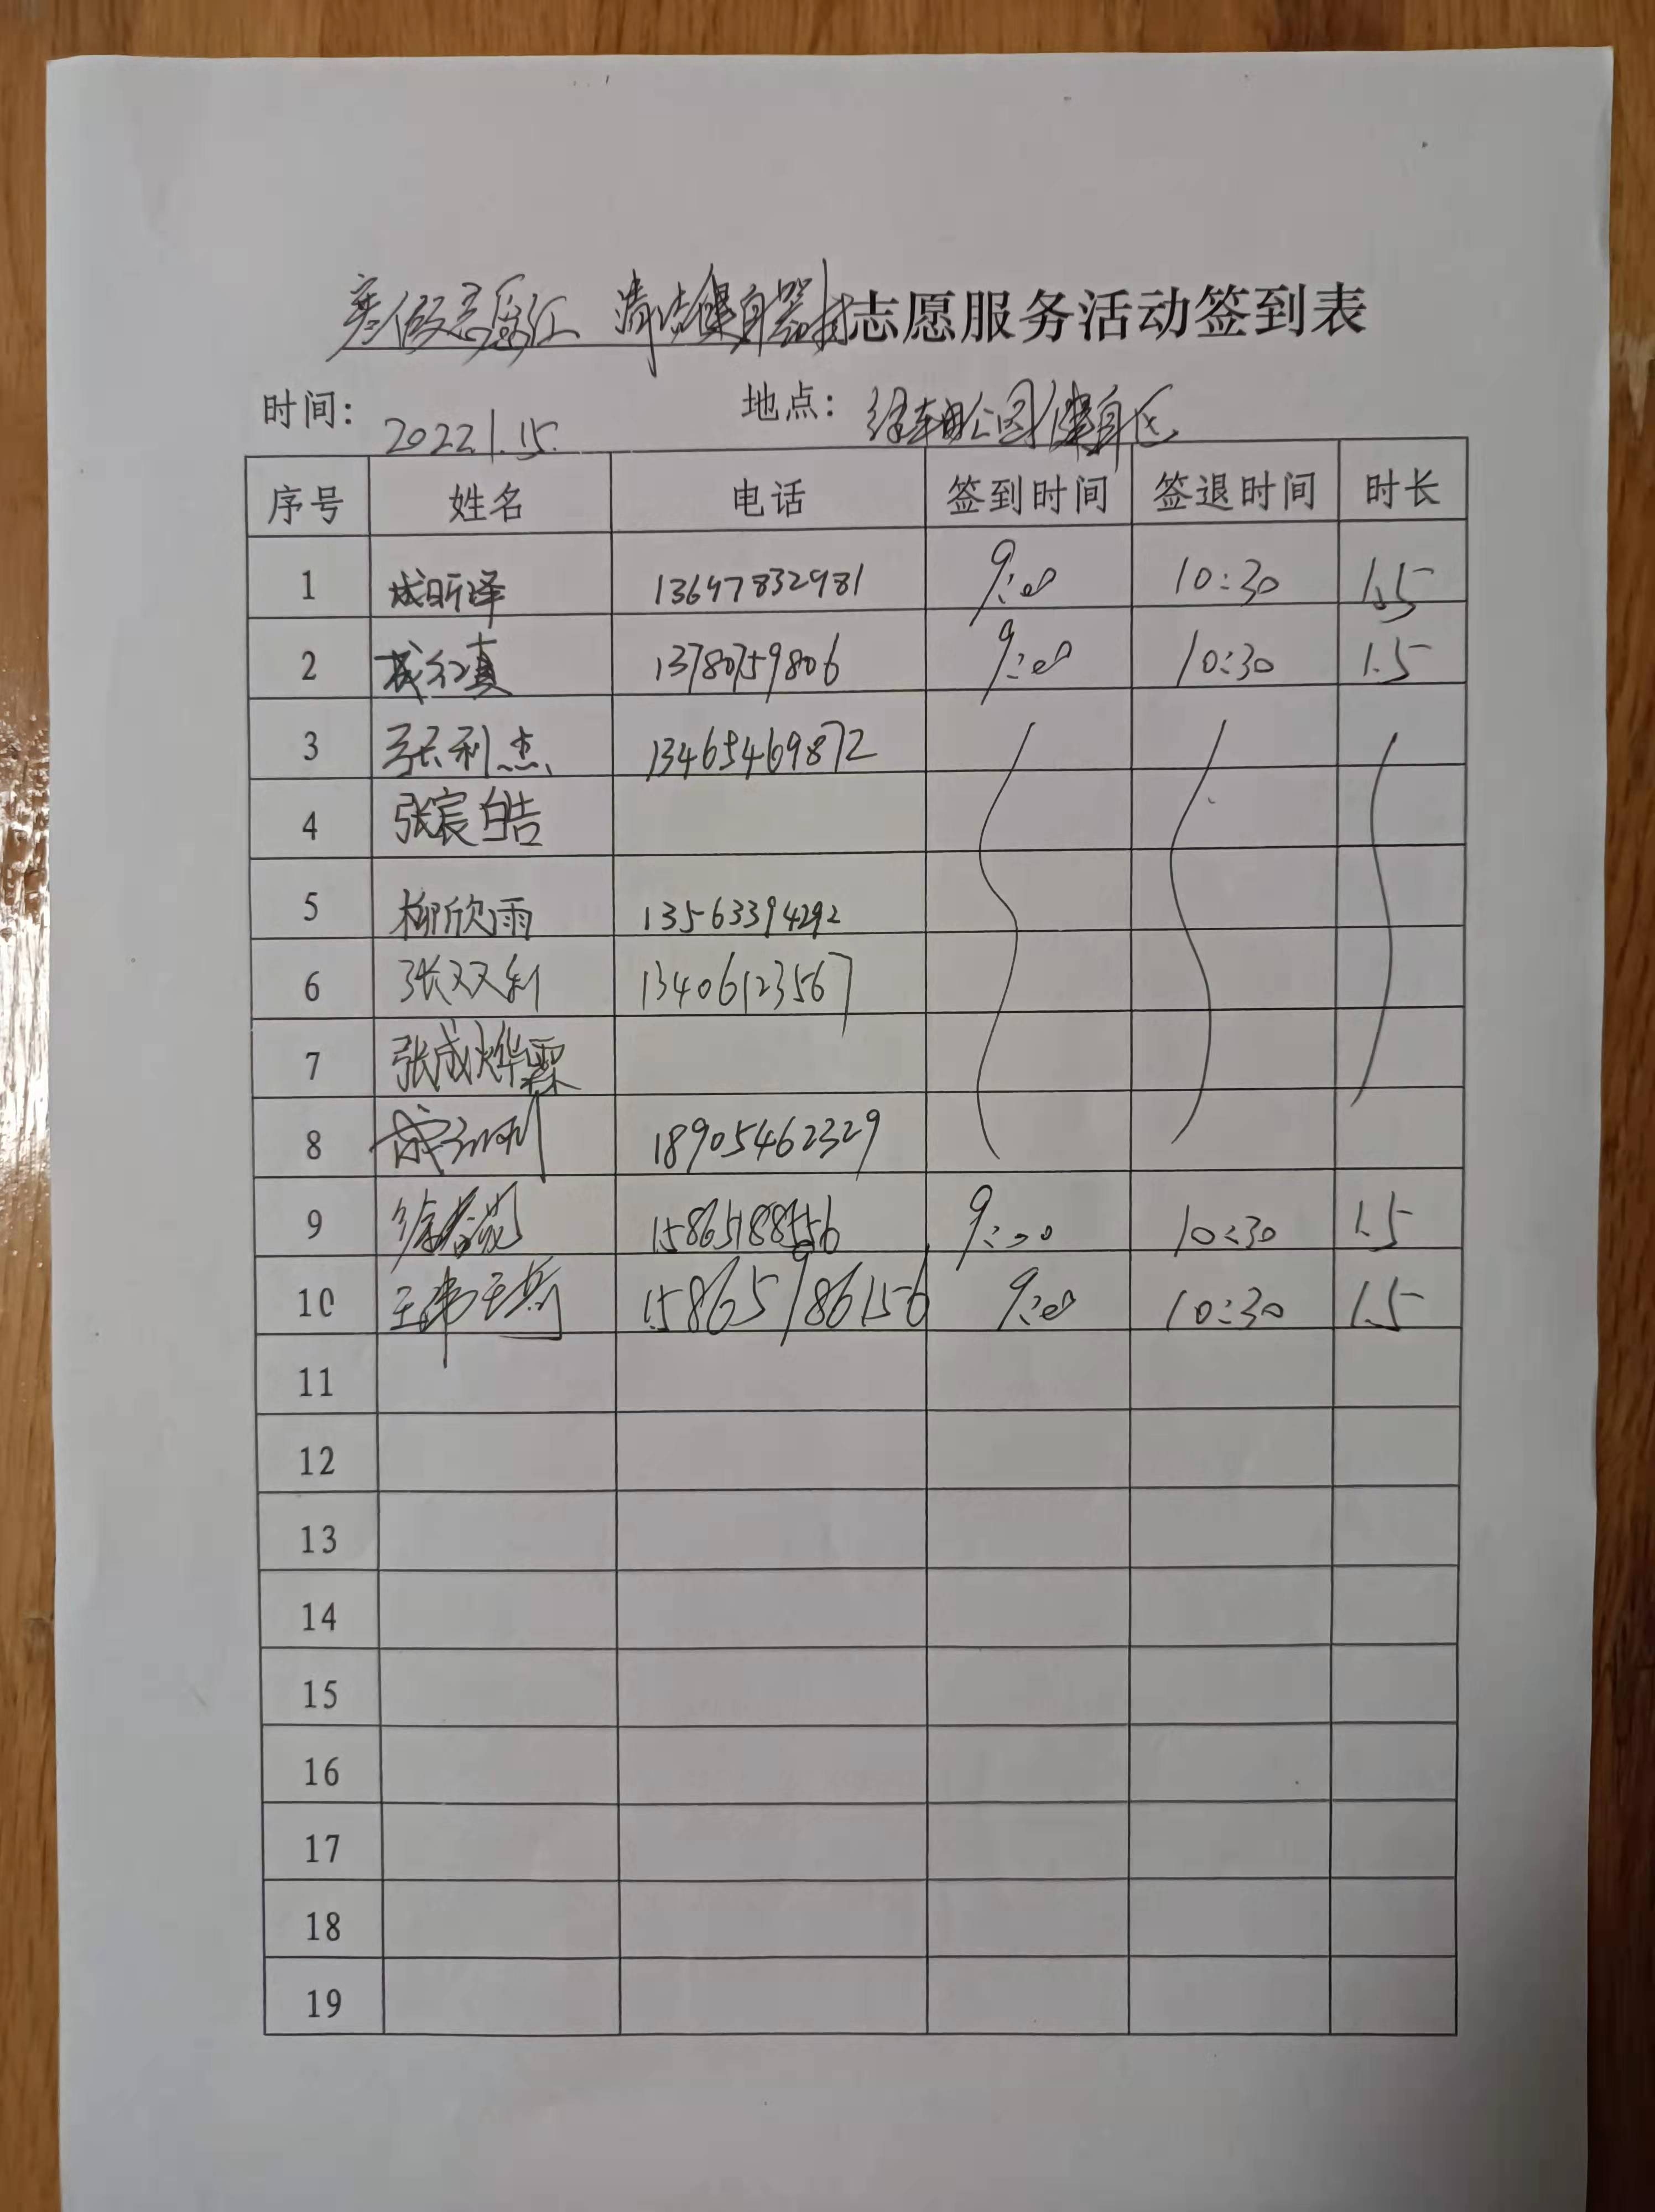 寒假志愿汇 清洁健身器材志愿服务活动签到表
时间: 2022.1.15. 地点: 公园健身区
序号 姓名 电话 签到时间 签退时间 时长
1 成昕泽 13697832981 9:00 10:30 1.5
2 13780759806 9:00 10:30 1.5
3 张利杰 13465469872
4 张宸皓
5 柳欣雨 13563394292
6 张双利 13406123567
7 张成烨霖
8 18905462329
9 9:00 10:30 1.5
10 9:00 10:30 1.5
11
12
13
14
15
16
17
18
19